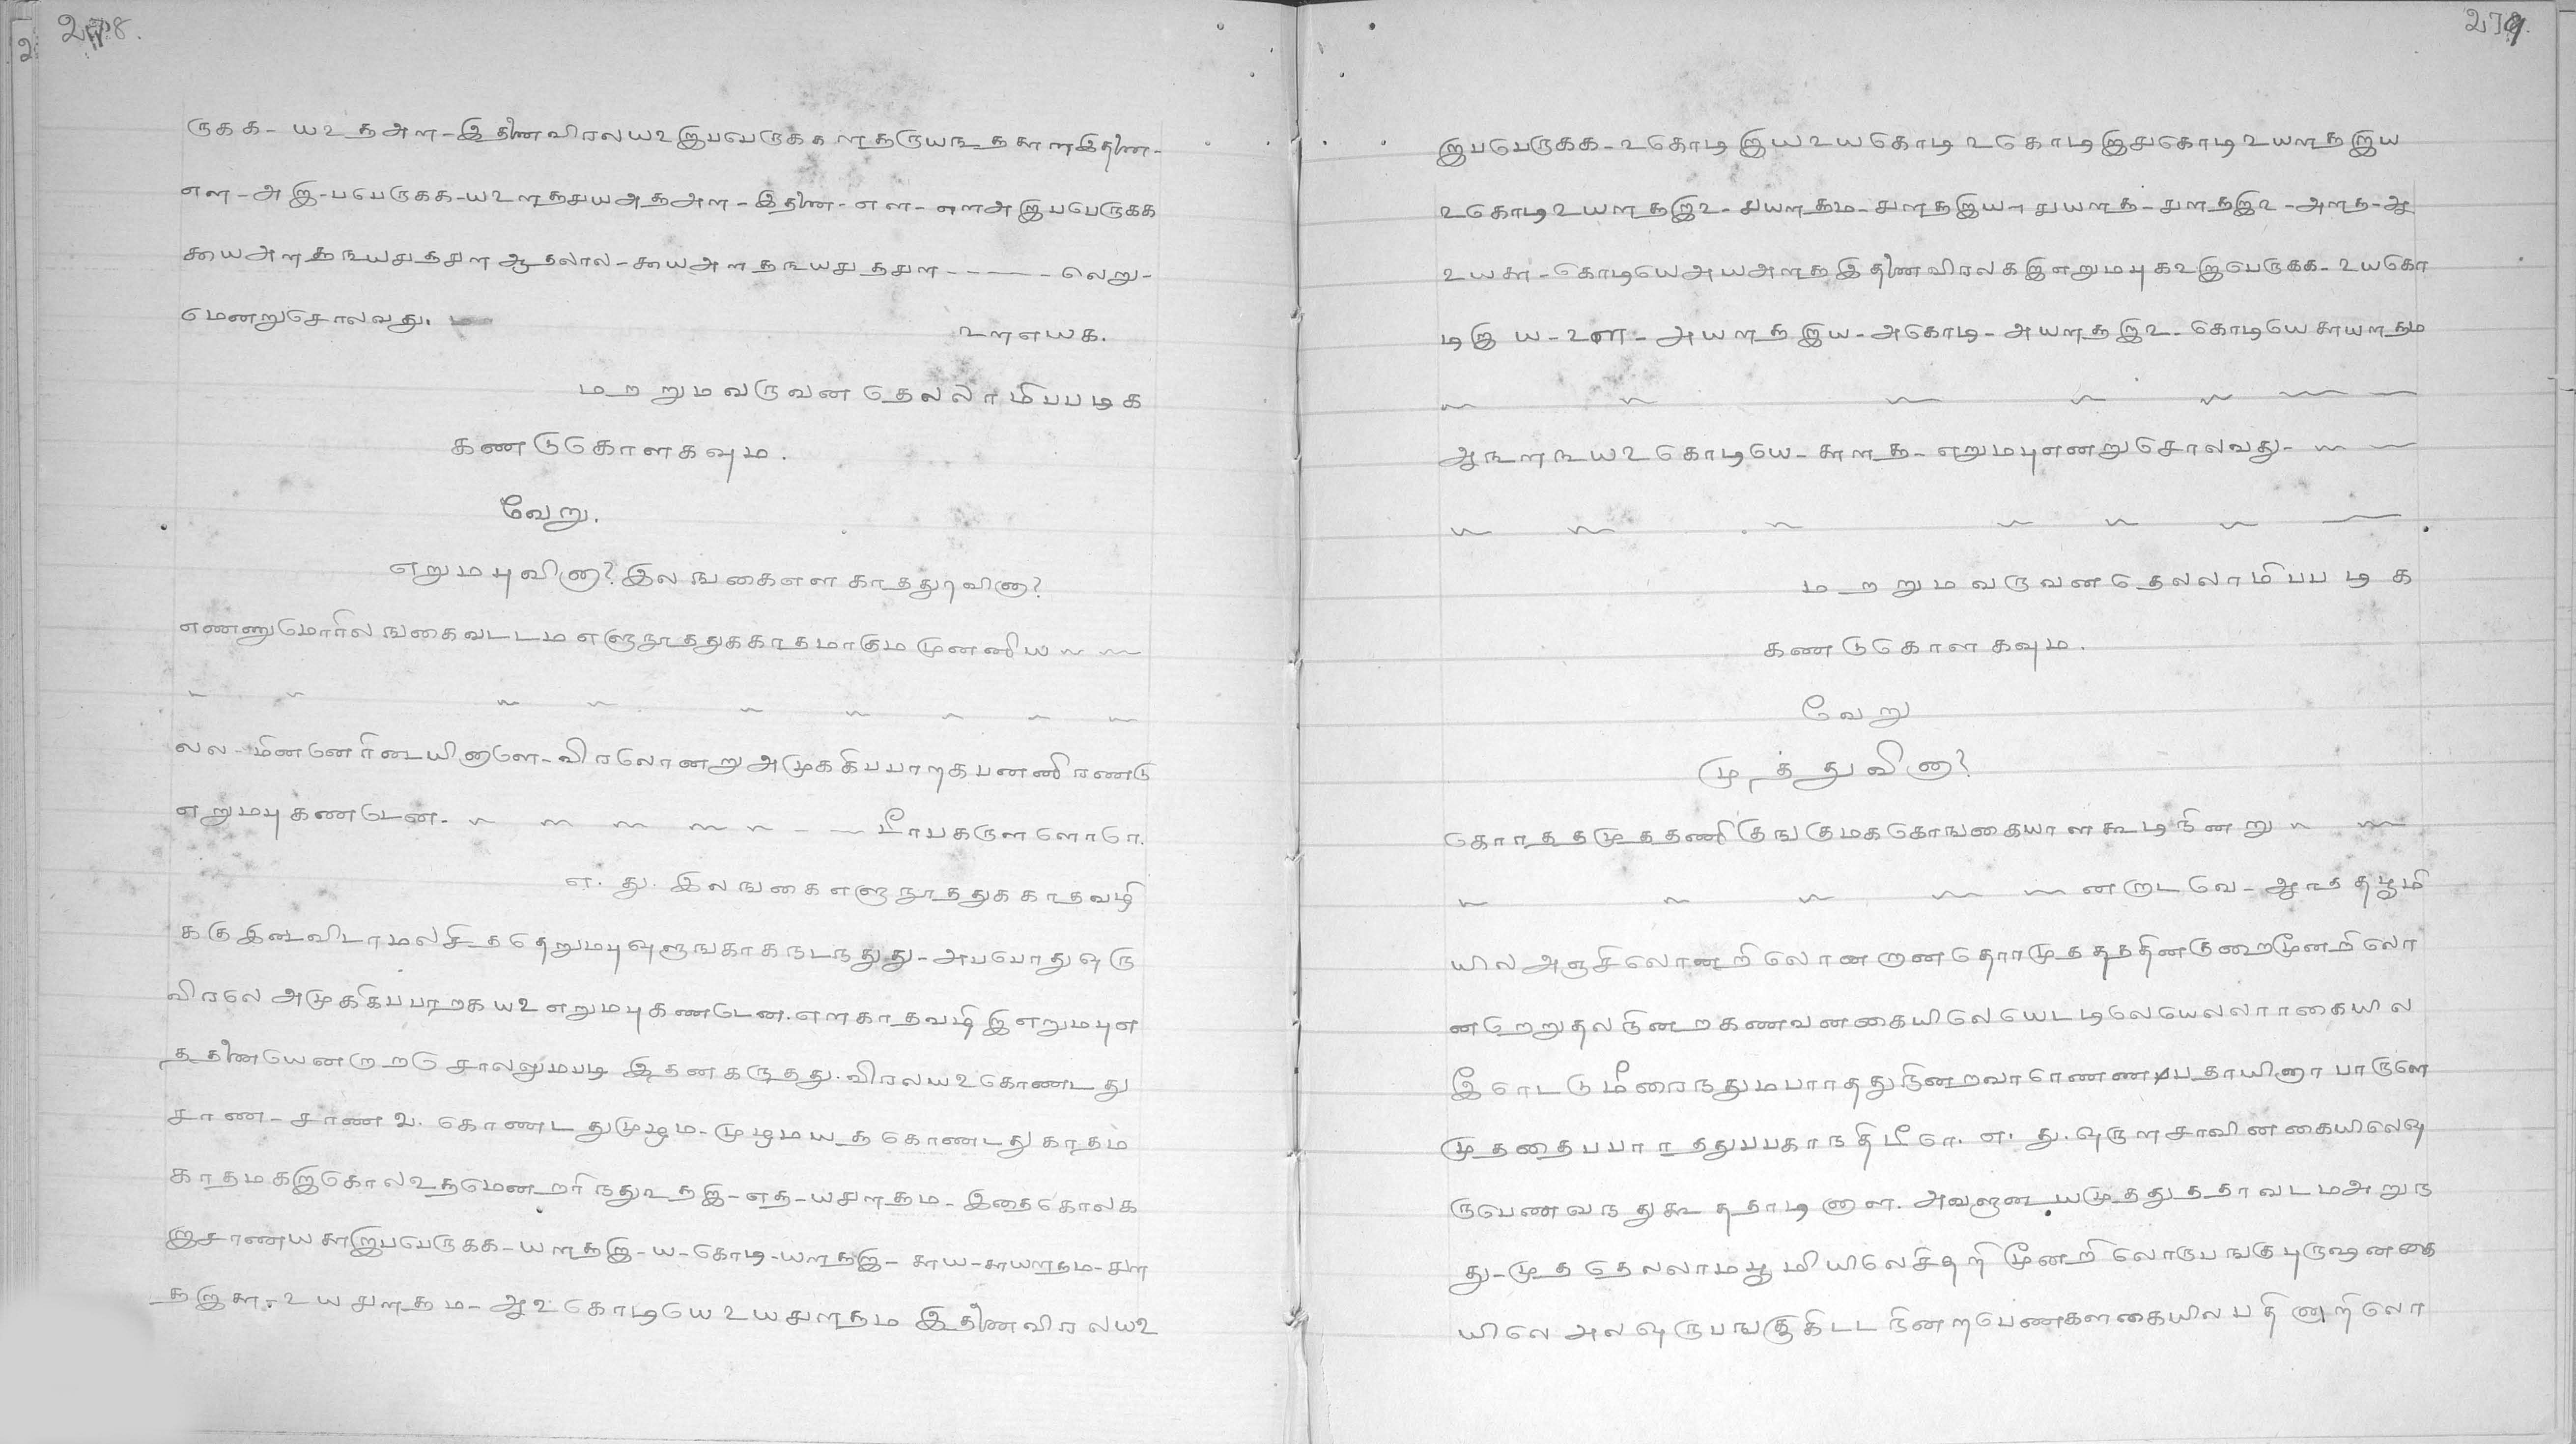 278.
ருகக- ய௨த அள-இதனைவிரலய௨இபபெருகக ளதருயஙதசுளஇதனை-
எள-அ இ-பபெருகக-ய௨ளதசுயஅதஅள-இதனை-எள-ளஅஇபபெருகக
சுயைஅளதஙயசுதசுள ஆதலால-சுயைஅளதஙயசுதசுள - - - - லெறு-
மெனறுசொலவது.
௨ளஎயக.
மறறுமவருவன தெலலாமிபபடிக
கணடுகொளகவும.
வேறு.
எறுமபுவினா? இலஙகைஎள காதததுவினா?
எணணுமொரிலஙகைவடடம எளுநூறதுககாதமாகும முனனிய
லல-மினனெரிடையினாளே-விரலொனறு அமுககிபபாறகபனனிரணடு
எறுமபு கணடென. பீாபகருளளொரே.
எ. து. இலஙகை எளுநூறதுக காதவழி
ககுஇடைவிடாமலசிததெறுமபு வுளுஙகாகநடநதுது-அபபொது வுரு
விரலே அமுககிபபாறக ய௨ எறுமபுகணடென. எளகாதவழிஇஎறுமபுஎ
ததனையெனறு றசொலலுமபடி இதனகருதது. விரலய௨கொணடது
சாண-சாண ௨. கொணடதுமுழம-முழமயத கொணடது காதம
காதமகஇகொல௨தமெனறறிநது௨தஇ-எத-யசுளதம-இதைகொலக
இசாணயசுஇபபெருகக-யளதஇ-ய-கொடி-யளதஇ-சுய-சுயளதம-சுள
தஇசு-௨ய சுளதம-ஆ௨கொடியெ ௨யசுளதம இதனைவிரலய௨
279.
இபபெருகக-௨கொடி இய௨யகொடி ௨கொடிஇசுகொடி ௨யளதஇய
௨கொடி௨யளதஇ௨-சுயளதம-சுளதஇய-சுயளத-சுளதஇ௨-அளத-ஆ
௨யசு-கொடியெஅயஅளதஇதனைவிரலகஇஎறுமபுக௨இபெருகக-௨யகொ
டிஇய-௨ள-அயளதஇய-அகொடி-அயளதஇ௨-கொடியெசுயளதம
ஆஙளஙய௨கொடியெ-சுளத-எறுமபுஎனறுசொலவது-
மறறுமவருவனதெலலாமிபபடிக
கணடுகொளகவும.
வேறு
முத்துவினா?
கொரததமுததணிகுஙகுமககொஙகையாளகூடிநினறு
னறூடவெ-ஆதததழுமி
யிலஅஞசிலொனறிலொனறானதொரமுதததநதினகுறைமூனறிலொ
னறெறுதலநினறகணவனகையிலெயெடடிலெயெலலாரகையில
இரொடடுமீரைநதுமபாரததுநினறவாரெணணபதாயினாபாருளெ
முததைபபாரததுபபகாநதிபீரெ. எ. து. வுருளசாவினகையிலெவு
ருபெணவநதுகூததாடினாள. அவளுடையமுததுததாவடமஅறுந
து-முததெலலாமபூமியிலெசிதறி மூனறிலொருபஙகுபுருஷனகை
யிலெ அலவுருபஙகுகிடடநினறபெணகளகையிலபதினாறிலொ